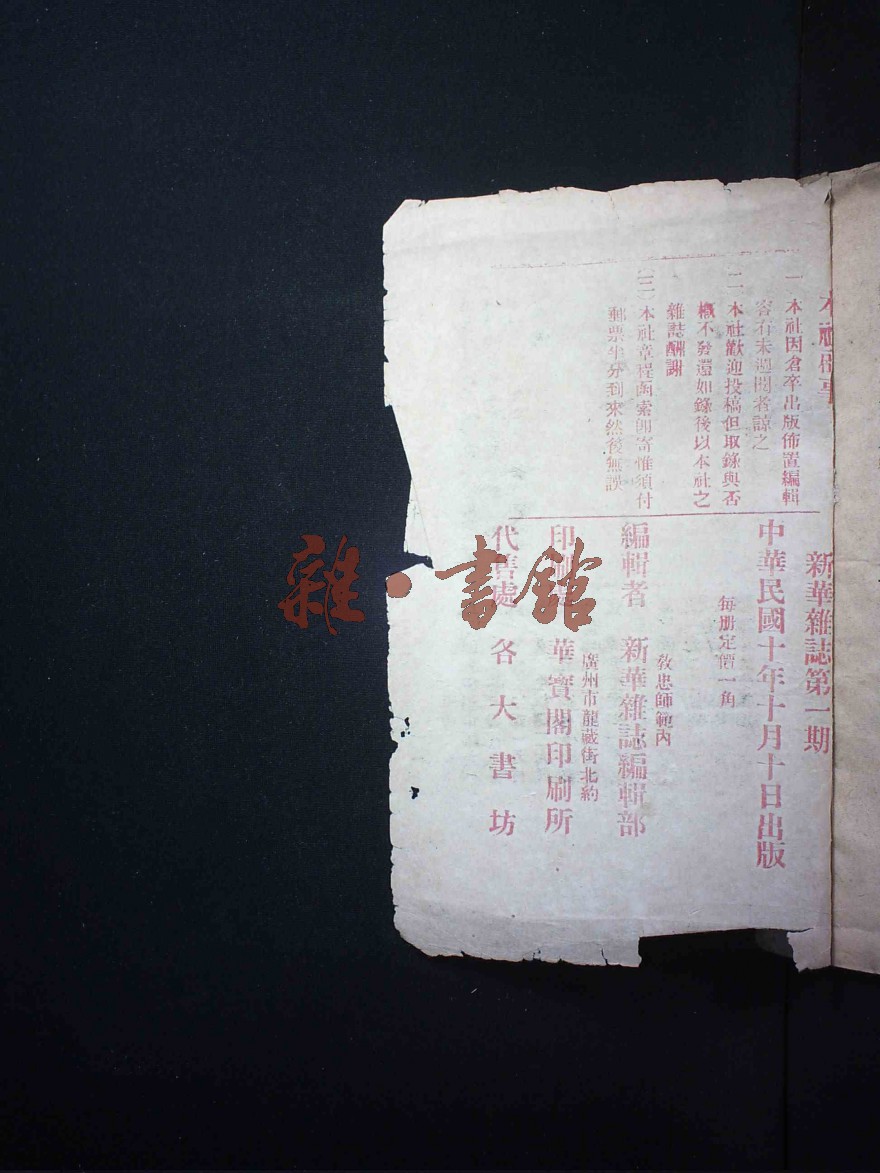 本社啓事
一 本社因倉卒出版佈置編輯
容有未週閱者諒之
二 本社歡迎投稿但取錄與否
概不發還如錄後以本社之
雜誌酬謝
(三)本社章程函索即寄惟須付
郵票半分到來然後無誤
新華雜誌第一期
中華民國十年十月十日出版
每册定價一角
教忠師範內
編輯者 新華雜誌編輯部
廣州市龍藏街北約
印刷 華寶閣印刷所
代售處 各大書坊
雜·書館